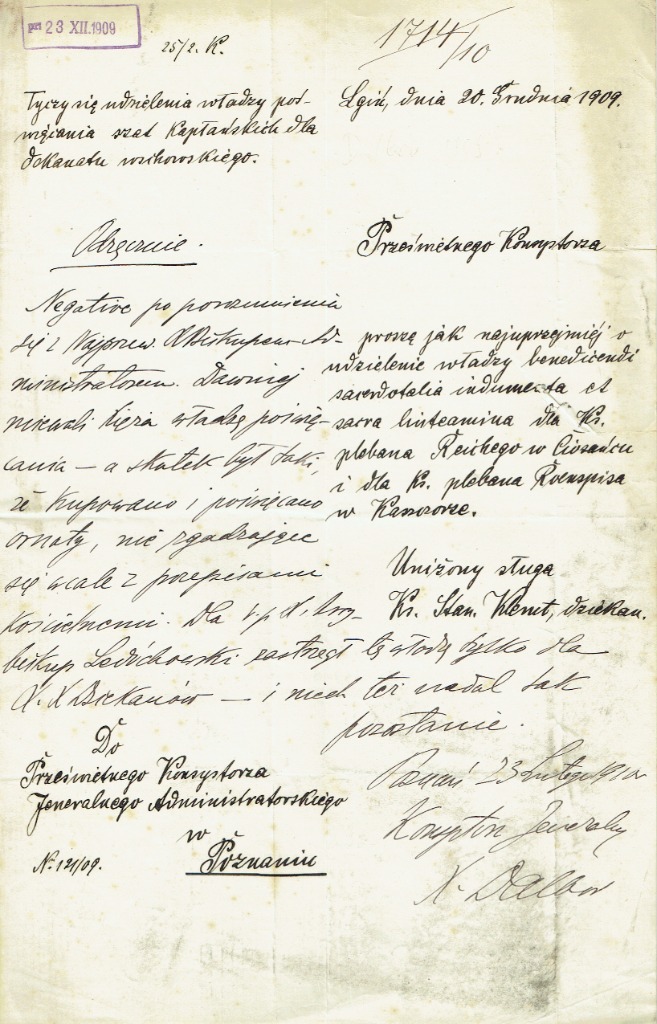 prs 23 XII. 1909
25/2. K.
1714/10
Tyczy się udzielenia władzy poś-
więcania szat kapłańskich dla
dekanatu wschowskiego.
Lgiń, dnia 20. Grudnia 1909.
Prześwietnego Konsystorza
proszę jak najuprzejmiéj o
udzielenie władzy benedicendi
sacerdotalia indumenta et
sacra linteamina dla Ks.
plebana Reichego w Ciosańcu
i dla Ks. plebana Roenspisa
w Kaszczorze.
Uniżony sługa
Ks. Stan. Klemt, dziekan.
Do
Prześwietnego Konsystorza
Jeneralnego Administratorskiego
w
Poznaniu
N. 121/09.
Odręcznie.
Negative po porozumieniu
się z Najprzew. X Biskupem Ad-
ministratorem. Dawniej
miewali księża władzę poświę-
cania — a skutek był taki,
że kupowano i poświęcano
ornaty, nie zgadzające
się wcale z przepisami
kościelnemi. Dla ś.p. X. Arcy-
biskup Ledóchowski zastrzegł tę władzę tylko dla
X. X Dziekanów — i niech też nadal tak
pozostanie.
Poznań 23 Lutego 1910
Konsystorz Jeneralny
X. Dalbor